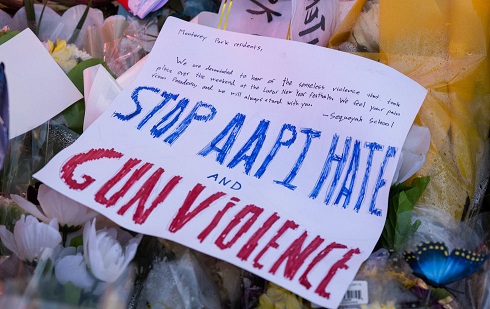 Monterey Park residents,
We are devastated to hear of the senseless violence that took
place over the weekend at the Lunar New Year festivities. We feel your pain
from Pasadena, and we will always stand with you. -Sequoyah School
STOP AAPI HATE
AND
GUN VIOLENCE